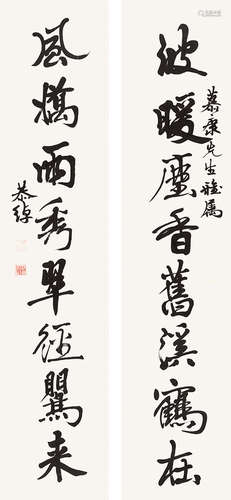 慕康先生雅屬
波暖塵香舊溪鶴在
風嬌雨秀翠徑鸎来
恭綽